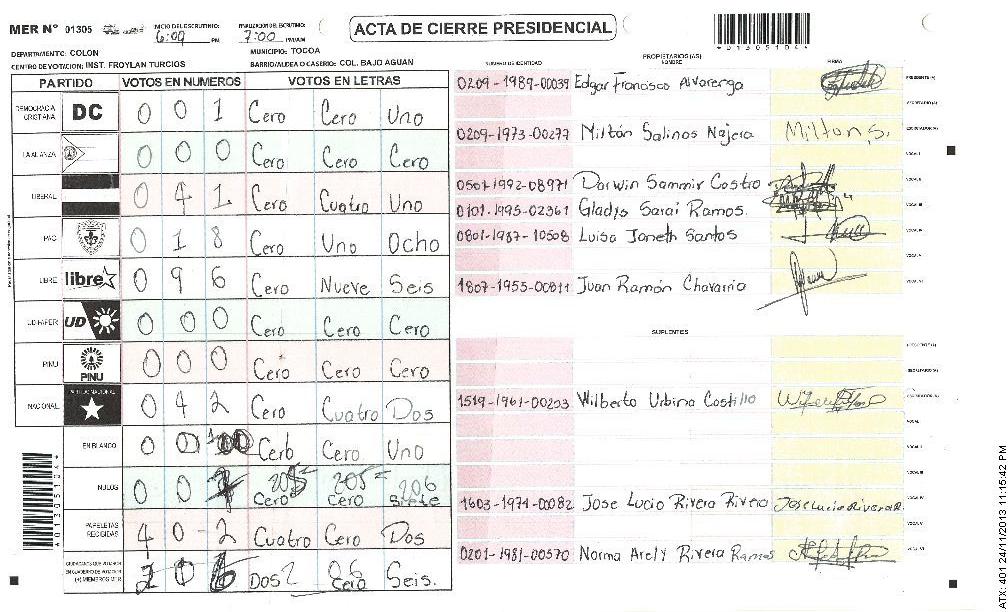 MER Nº 01305
INICIO DEL ESCRUTINIO: 6:00 PM
FINALIZACION DEL ESCRUTINIO: 7:00 PM/AM
ACTA DE CIERRE PRESIDENCIAL
*01305104*
DEPARTAMENTO: COLON
MUNICIPIO: TOCOA
CENTRO DE VOTACION: INST. FROYLAN TURCIOS
BARRIO/ALDEA O CASERIO: COL. BAJO AGUAN
PARTIDO VOTOS EN NUMEROS VOTOS EN LETRAS
DEMOCRACIA CRISTIANA DC 0 0 1 Cero Cero Uno
LA ALIANZA 0 0 0 Cero Cero Cero
LIBERAL 0 4 1 Cero Cuatro Uno
PAC 0 1 8 Cero Uno Ocho
LIBRE libre 0 9 6 Cero Nueve Seis
UD-FAPER UD 0 0 0 Cero Cero Cero
PINU PINU 0 0 0 Cero Cero Cero
NACIONAL PARTIDO NACIONAL 0 4 2 Cero Cuatro Dos
EN BLANCO 0 Uno
NULOS 0 0 Cero Cero
PAPELETAS RECIBIDAS 4 0 2 Cuatro Cero Dos
CIUDADANOS QUE VOTARON EN CUADERNO DE VOTACION (+) MIEMBROS MER 2 0 6 Dos Cero Seis.
*01305104*
NUMERO DE IDENTIDAD PROPIETARIOS (AS) NOMBRE FIRMA
0209-1989-00039 Edgar Francisco Alvarerga PRESIDENTE (A)
SECRETARIO (A)
0209-1973-00277 Milton Salinos Najera Milton S. ESCRUTADOR (A)
VOCAL I
0501-1992-08971 Darwin Sammir Castro VOCAL II
0101-1995-02361 Gladys Sarai Ramos. VOCAL III
0801-1987-10508 Luisa Janeth Santos VOCAL IV
VOCAL V
1807-1953-00811 Juan Ramón Chavarria VOCAL VI
SUPLENTES
PRESIDENTE (A)
SECRETARIO (A)
1519-1961-00203 Wilberto Urbina Castillo ESCRUTADOR (A)
VOCAL I
VOCAL II
VOCAL III
1603-1971-00082 Jose Lucio Rivera Rivera Jose Lucio Rivera R. VOCAL IV
VOCAL V
0201-1981-00570 Norma Arely Rivera Ramos VOCAL VI
ATX: 401 24/11/2013 11:15:42 PM